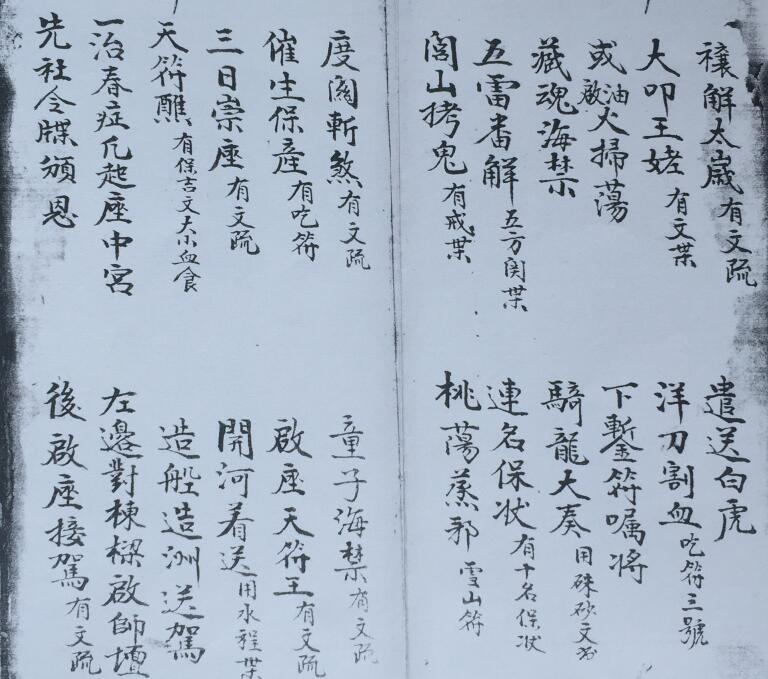 禳解太歲有文疏
遣送白虎
大叩王姥有文枼
洋刀割血吃符三號
或啟油火掃蕩
下塹符囑将
藏魂海禁
騎龍大奏用硃砂文
五雷番解五方関枼
連名保状有十名保状
閭山拷鬼有戒枼
桃蕩蒸邪雪山符
度関斬煞有文疏
童子海禁有文疏
催生保產有吃符
啟座天符王有文疏
三日崇座有文疏
開河着送用水程枼
天符醮有保吉文大小血食
造船造洲送駕
一治春症凡起座中宮
左邊對棟樑啟師壇
先社令牒頒恩
後啟座接駕有文疏